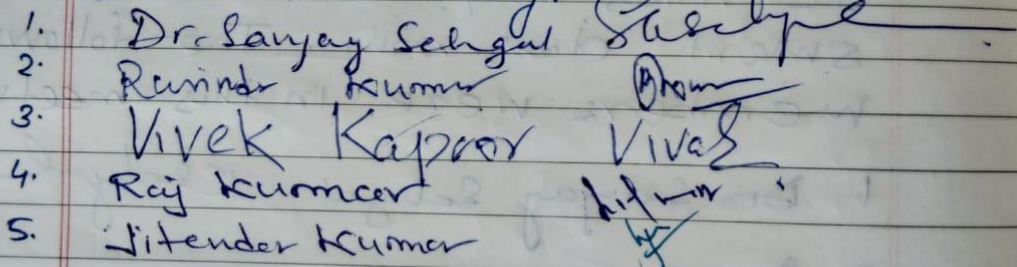 1. Dr. Sanjay Sehgal
2. Ravinder Kumar
3. Vivek Kapoor Vivek
4. Raj Kumar
5. Jitender Kumar